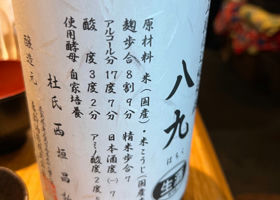 八九
はちく
原材料 米(国産)・米こうじ(国産
麹歩合 8割9分 精米歩合7
アルコール分 17度7分 日本酒度(一)7
酸度 3度2分 アミノ酸度 2度
使用酵母 自家培養
醸造元
杜氏 西垣昌